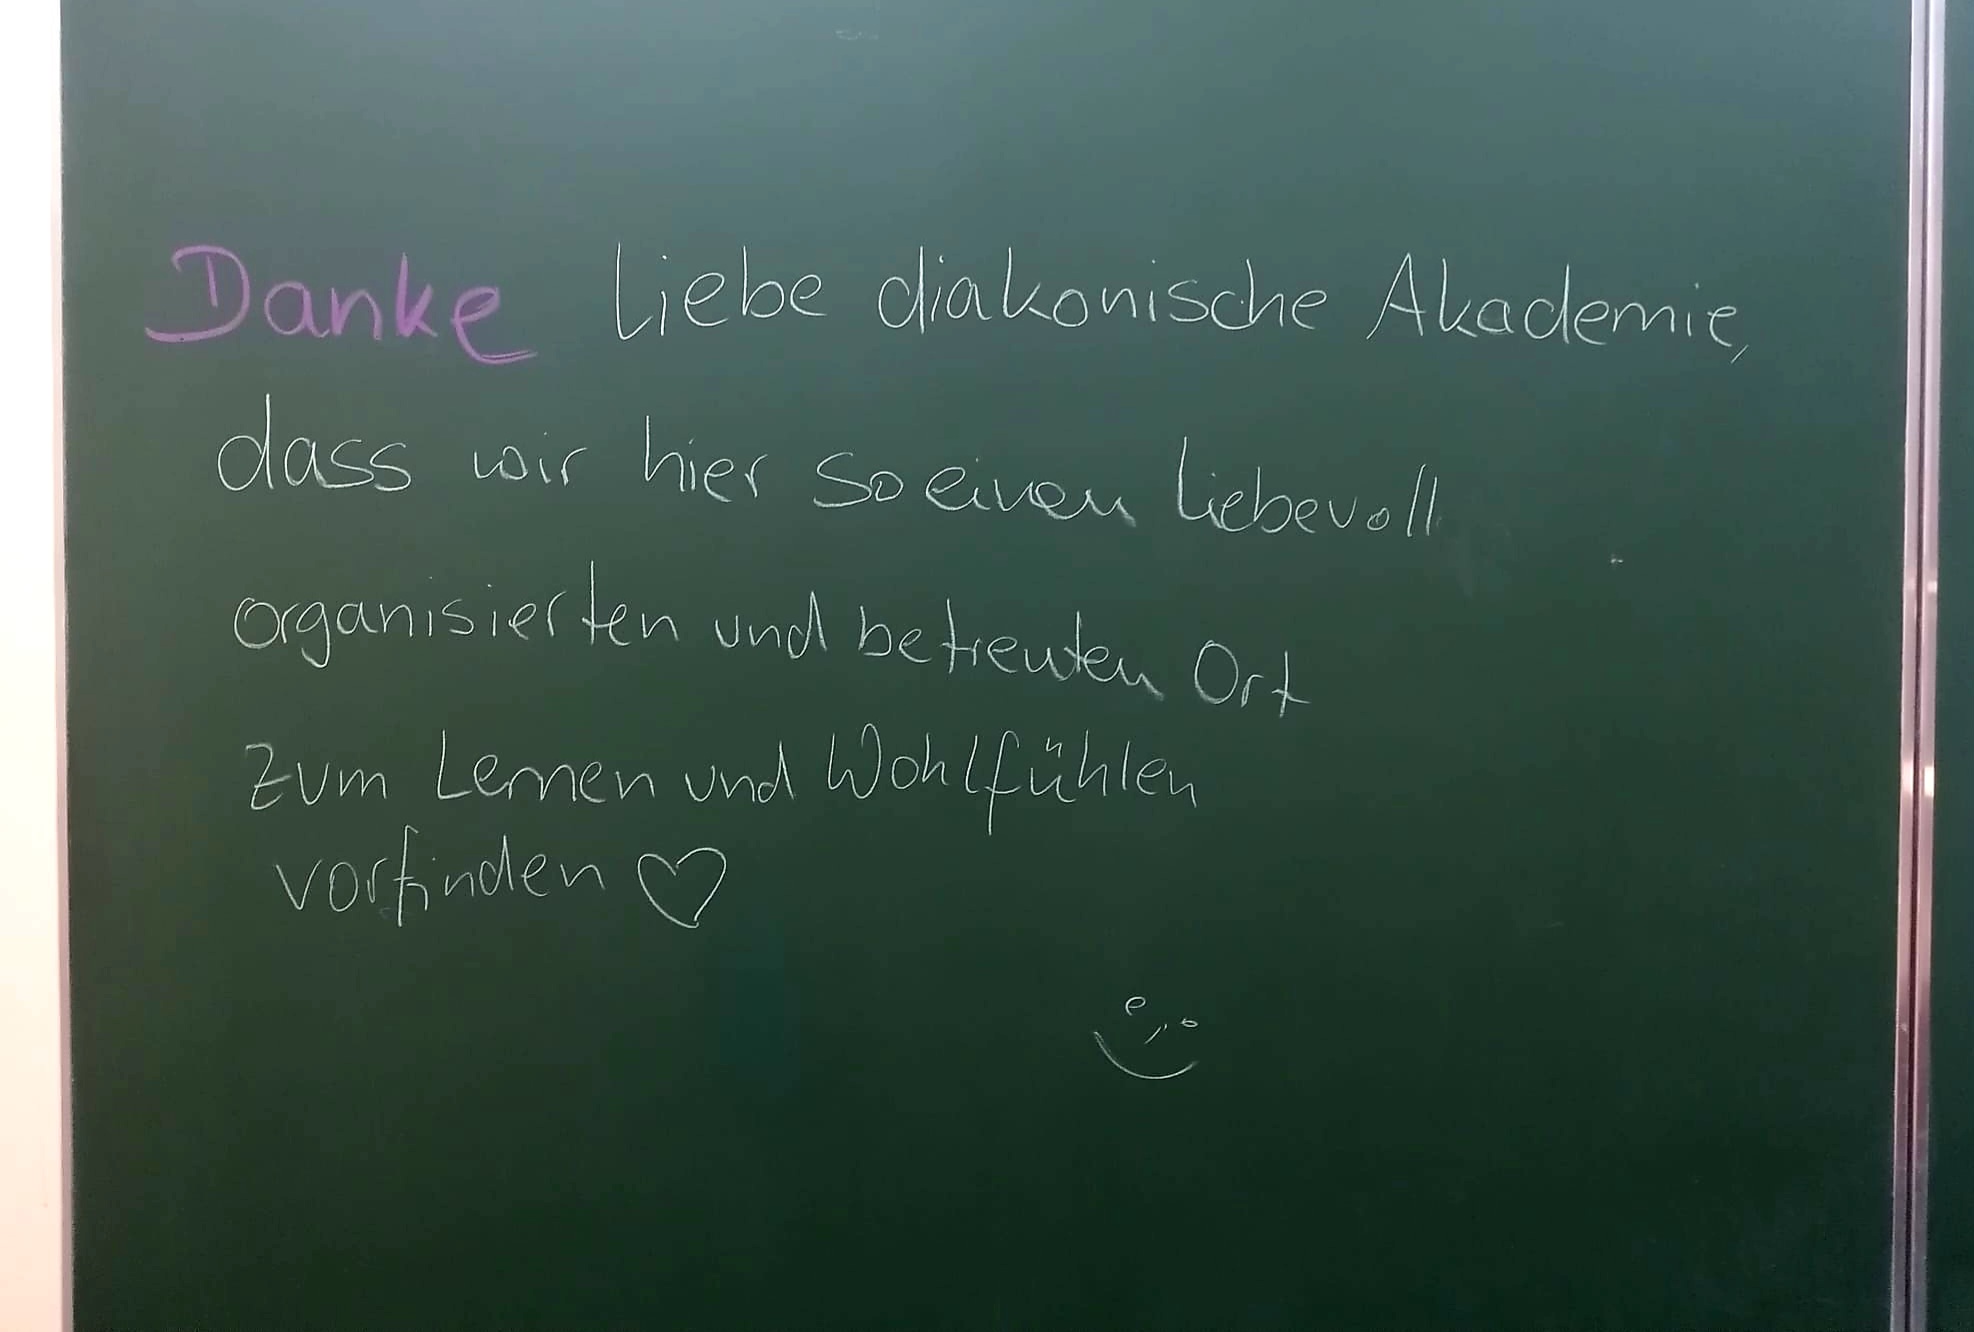 Danke liebe diakonische Akademie,
dass wir hier so einen liebevoll
organisierten und betreuten Ort
zum Lernen und Wohlfühlen
vorfinden ♡